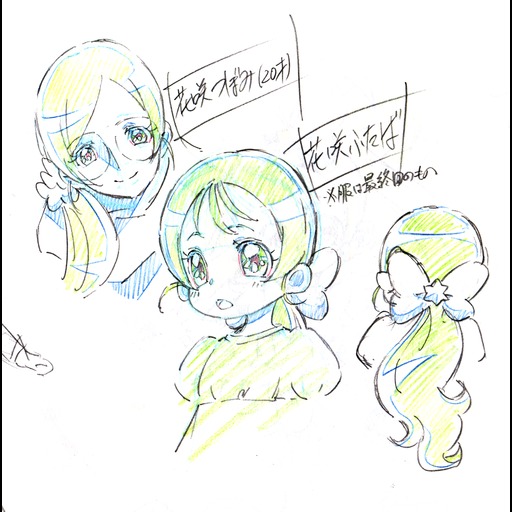 花咲つぼみ(20才)
花咲ふたば
※服は最終回のもの